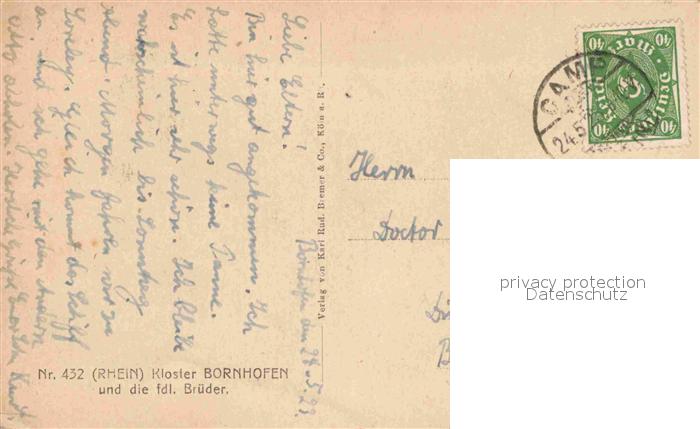 Bornhofen den 24.5.23.
Liebe Eltern!
Bin hier gut angekommen. Ich
hatte unterwegs keine Panne.
Es ist hier sehr schön. Ich bleibe
wahrscheinlich bis Sonntag
Abend. Morgen fahren wir zu
Loreley. Gleich kommt das Schiff
an und ich gehe mit den Andern
Otto abholen. Herzliche Grüße Euer Knut
Nr. 432 (RHEIN) Kloster BORNHOFEN
und die fdl. Brüder.
Verlag von Karl Rud. Bremer & Co., Köln a. R.
Herrn
Doctor
CAMP
24.5
40 40
Mark
Deutsches Reich
40 40
privacy protection
Datenschutz